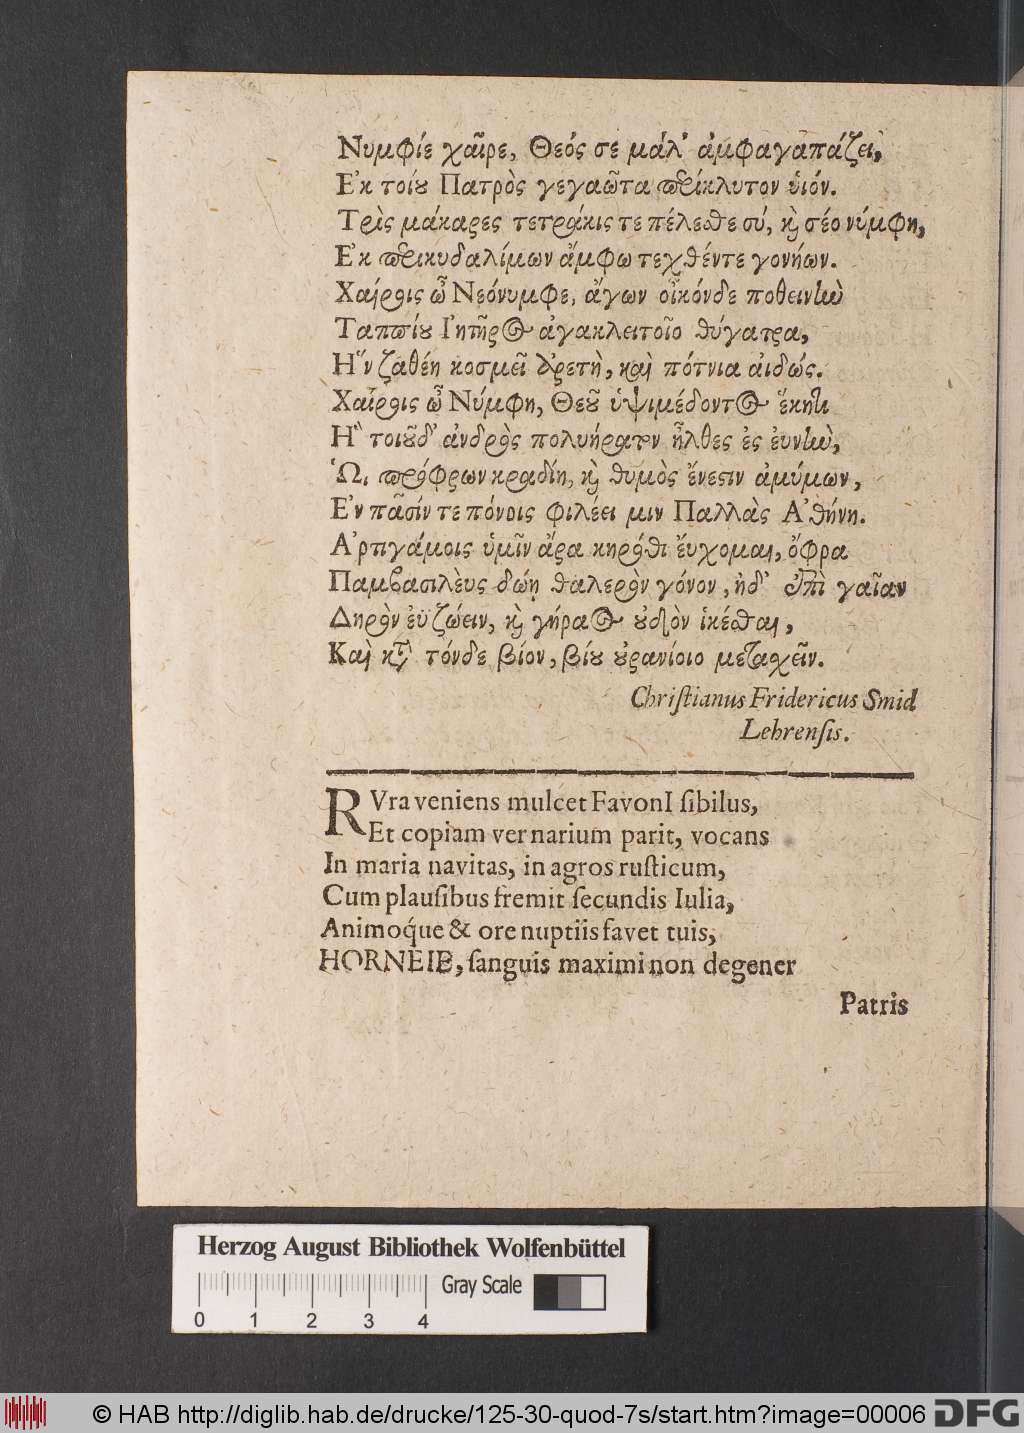 Νυμφίε χαῖρε, Θεός σε μάλ' ἀμφαγαπάζει,
Ε'κ τοίου Πατρὸς γεγαῶτα περίκλυτον ὑιόν.
Τρὶς μάκαρες τετράκις τε πέλεσθε σύ, καὶ σέο νύμφη,
Ε'κ περικυδαλίμων ἄμφω τεχθέντε γονήων.
Χαίροις ὦ Νεόνυμφε, ἄγων οἶκόνδε ποθεινὴν
Ταππίου Ι'ητῆρος ἀγακλειτοῖο θύγατρα,
Η῞ν ζαθέη κοσμεῖ ἀρετὴ, καὶ πότνια αἰδώς.
Χαίροις ὦ Νύμφη, Θεοῦ ὑψιμέδοντος ἕκητι
Η῝ τοιοῦδ' ἀνδρὸς πολυήρατον ἦλθες ἐς ἐυνὴν,
Ὡι πρόφρων κραδίη, καὶ θυμὸς ἔνεστιν ἀμύμων,
Ε'ν πᾶσίν τε πόνοις φιλέει μιν Παλλὰς Α'θήνη.
Α'ρτιγάμοις ὑμῖν ἄρα κηρόθι ἔυχομαι, ὄφρα
Παμβασιλεὺς δώῃ θαλερὸν γόνον, ἠδ' ἐπὶ γαῖαν
Δηρὸν ἐὺ ζώειν, καὶ γήραος οὐδὸν ἱκέσθαι,
Καὶ κατ τόνδε βίον, βίου οὐρανίοιο μετασχεῖν.
Chriſtianus Fridericus Smid
Lehrenſis.
RVra veniens mulcet FavonI ſibilus,
Et copiam vernarium parit, vocans
In maria navitas, in agros ruſticum,
Cum plauſibus fremit ſecundis Iulia,
Animoq́ue & ore nuptiis favet tuis,
HORNEIE, ſanguis maximi non degener
Patris
Herzog August Bibliothek Wolfenbüttel
Gray Scale
0 1 2 3 4
© HAB http://diglib.hab.de/drucke/125-30-quod-7s/start.htm?image=00006 DFG